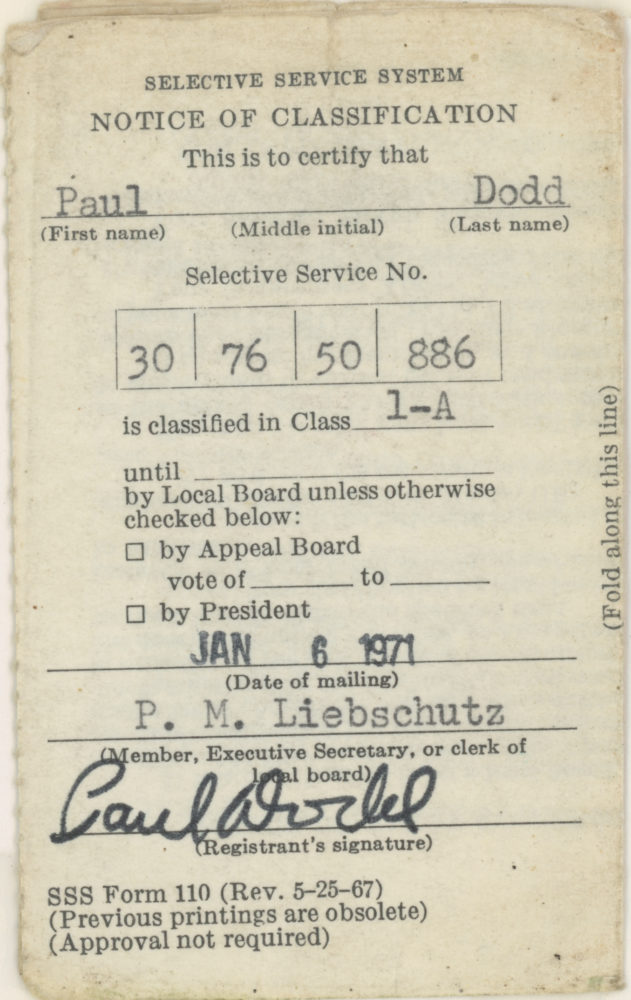 SELECTIVE SERVICE SYSTEM
NOTICE OF CLASSIFICATION
This is to certify that
Paul Dodd
(First name) (Middle initial) (Last name)
Selective Service No.
30 76 50 886
is classified in Class 1-A
until
by Local Board unless otherwise
checked below:
☐ by Appeal Board
vote of ______ to ______
☐ by President
JAN 6 1971
(Date of mailing)
P. M. Liebschutz
(Member, Executive Secretary, or clerk of
local board)
Paul Dodd
(Registrant's signature)
SSS Form 110 (Rev. 5-25-67)
(Previous printings are obsolete)
(Approval not required)
(Fold along this line)